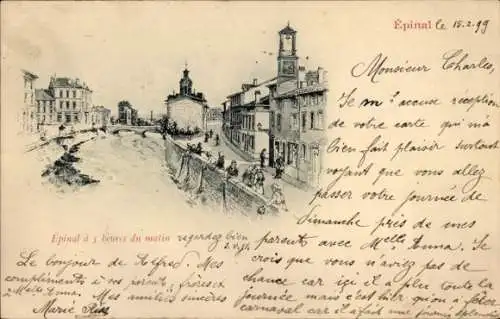 Épinal le 15.2.99
Monsieur Charles,
Je m'accuse réception
de votre carte qui m'a
bien fait plaisir surtout
voyant que vous allez
passer votre journée de
Dimanche près de mes
parents avec Melle Anna. Je
crois que vous n'avez pas de
chance car ici il a plu toute la
journée mais c'est hier qu'on a fêter
carnaval car il a fait une journée splendide
Épinal à 5 heures du matin
regardez bien
S.V.P.
Le bonjour de Alfred. Mes
compliments à vos parents, frères et
à Melle Anna. Mes amitiés sincères
Marie